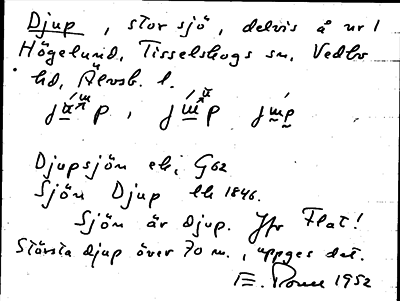 Djup, stor sjö, delvis å nr 1
Högelund, Tisselskogs sn, Vedbo
hd, Älvsb. l.
Djupsjön ek, G62
Sjön Djup lk 1846.
Sjön är djup. Jfr Flat!
Största djup över 70 m., uppges det.
1952